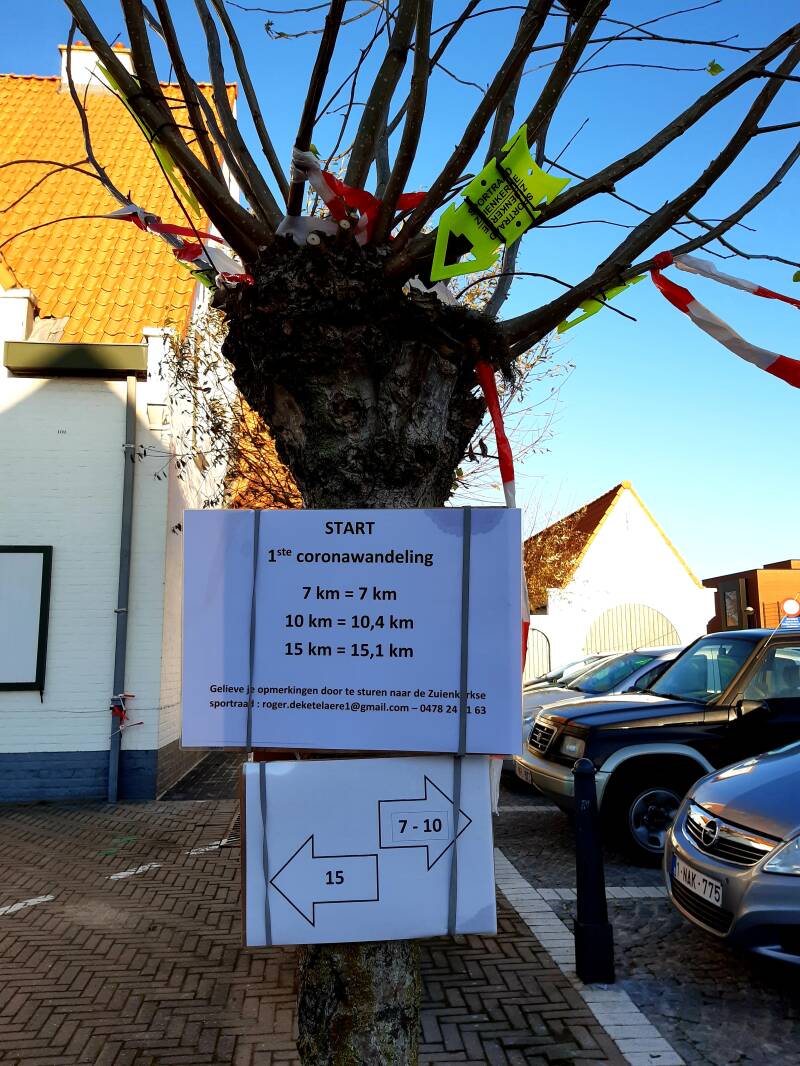 SPORTRAAD
ZUIENKERKE
START
1ste coronawandeling
7 km = 7 km
10 km = 10,4 km
15 km = 15,1 km
Gelieve je opmerkingen door te sturen naar de Zuienkerkse
sportraad : roger.deketelaere1@gmail.com – 0478 24 1 63
7 - 10
15
1-NAK-775